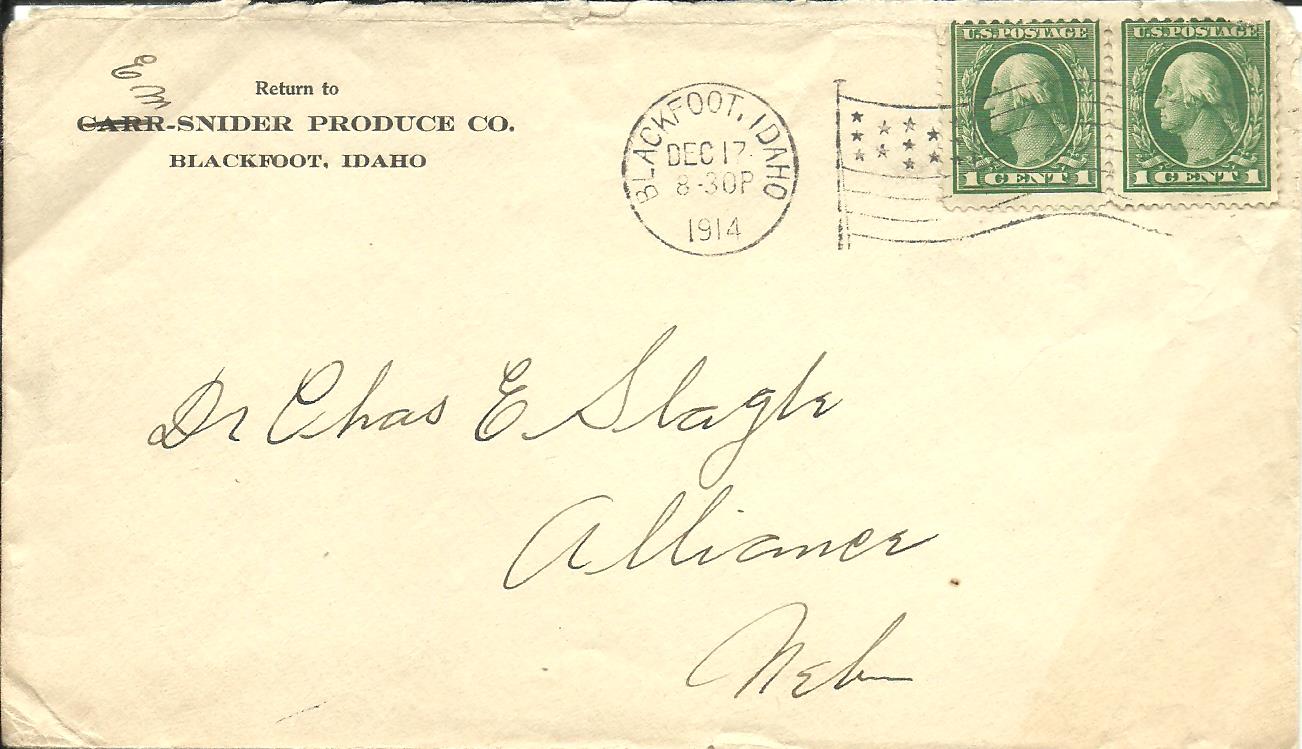 E W
Return to
CARR-SNIDER PRODUCE CO.
BLACKFOOT, IDAHO
BLACKFOOT, IDAHO
DEC 17
8-30P
1914
U.S. POSTAGE
1 CENT 1
U.S. POSTAGE
1 CENT 1
Dr Chas E Slagle
Alliance
Neb